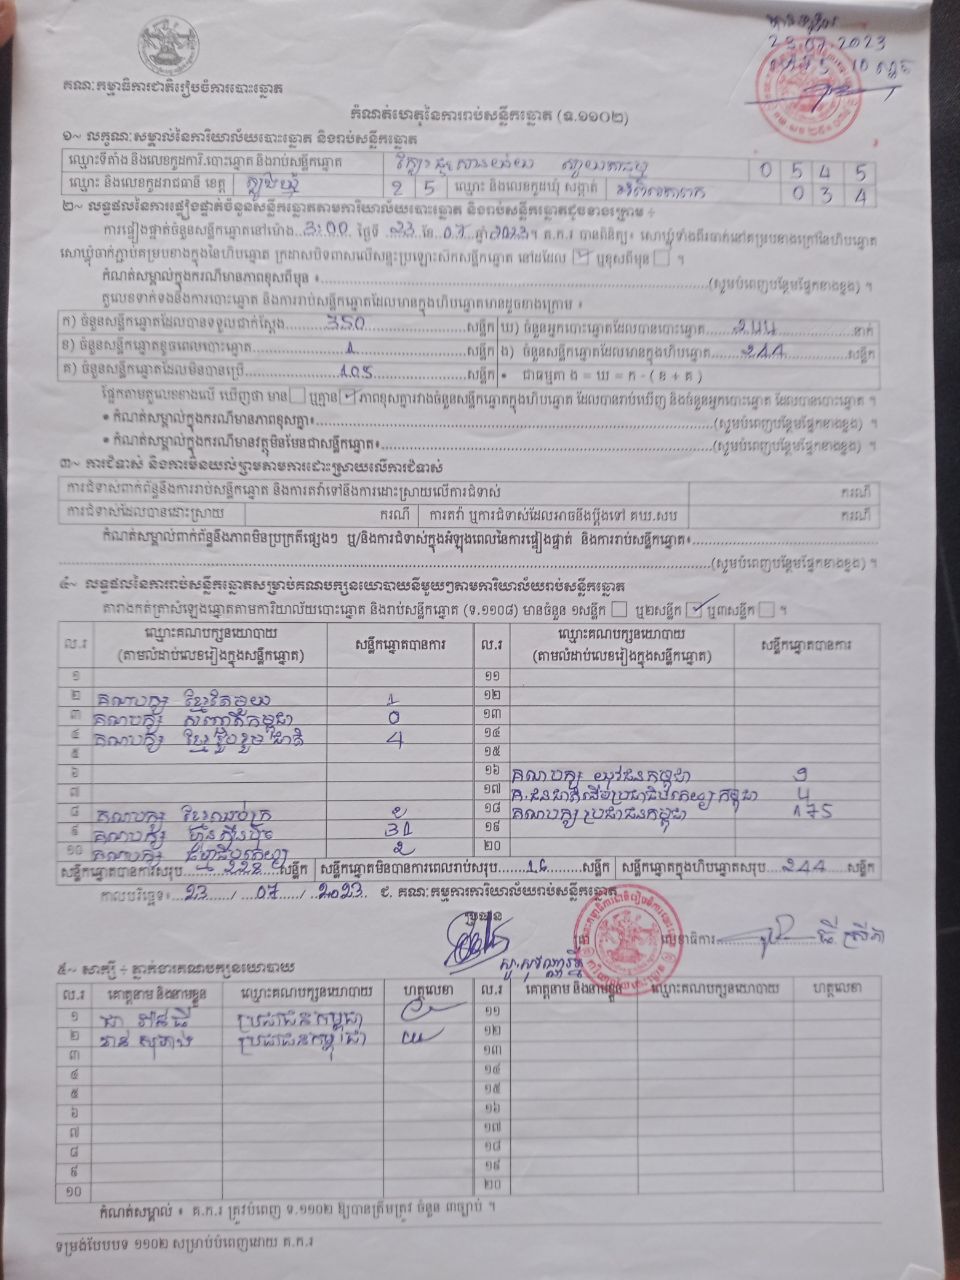 គណៈកម្មាធិការជាតិរៀបចំការបោះឆ្នោត
23.07.2023
កំណត់ហេតុនៃការរាប់សន្លឹកឆ្នោត (ទ.១១០២)
១~ លក្ខណៈសម្គាល់នៃការិយាល័យបោះឆ្នោត និងរាប់សន្លឹកឆ្នោត
ឈ្មោះទីតាំង និងលេខកូដការិ.បោះឆ្នោត និងរាប់សន្លឹកឆ្នោត 0 5 4 5
ឈ្មោះ និងលេខកូដរាជធានី ខេត្ត ត្បូងឃ្មុំ 2 5 ឈ្មោះ និងលេខកូដឃុំ សង្កាត់ 0 3 4
២~ លទ្ធផលនៃការផ្ទៀងផ្ទាត់ចំនួនសន្លឹកឆ្នោតតាមការិយាល័យបោះឆ្នោត និងរាប់សន្លឹកឆ្នោតដូចខាងក្រោម ÷
ការផ្ទៀងផ្ទាត់ចំនួនសន្លឹកឆ្នោតនៅម៉ោង 3:00 ថ្ងៃទី 23 ខែ 07 ឆ្នាំ 2023។ គ.ក.រ បានពិនិត្យ៖ សោឃ្លុំទាំងពីរចាក់នៅគម្របខាងក្រៅនៃហិបឆ្នោត
សោឃ្លុំចាក់ភ្ជាប់គម្របខាងក្នុងនៃហិបឆ្នោត ក្រដាសបិទពាសលើសន្ទះប្រឡោះស៊កសន្លឹកឆ្នោត នៅដដែល ☑ ឬខុសពីមុន ☐ ។
កំណត់សម្គាល់ក្នុងករណីមានភាពខុសពីមុន ៖ (សូមបំពេញបន្ថែមផ្នែកខាងខ្នង) ។
តួលេខទាក់ទងនឹងការបោះឆ្នោត និងការរាប់សន្លឹកឆ្នោតដែលមានក្នុងហិបឆ្នោតមានដូចខាងក្រោម ៖
ក) ចំនួនសន្លឹកឆ្នោតដែលបានទទួលជាក់ស្តែង 350 សន្លឹក ឃ) ចំនួនអ្នកបោះឆ្នោតដែលបានបោះឆ្នោត 244 នាក់
ខ) ចំនួនសន្លឹកឆ្នោតខូចពេលបោះឆ្នោត 1 សន្លឹក ង) ចំនួនសន្លឹកឆ្នោតដែលមានក្នុងហិបឆ្នោត 244 សន្លឹក
គ) ចំនួនសន្លឹកឆ្នោតដែលមិនបានប្រើ 105 សន្លឹក • ជាធម្មតា ង = ឃ = ក - ( ខ + គ )
ផ្អែកតាមតួលេខខាងលើ ឃើញថា មាន ☐ ឬគ្មាន ☑ ភាពខុសគ្នារវាងចំនួនសន្លឹកឆ្នោតក្នុងហិបឆ្នោត ដែលបានរាប់ឃើញ និងចំនួនអ្នកបោះឆ្នោត ដែលបានបោះឆ្នោត ។
• កំណត់សម្គាល់ក្នុងករណីមានភាពខុសគ្នា៖ (សូមបំពេញបន្ថែមផ្នែកខាងខ្នង) ។
• កំណត់សម្គាល់ក្នុងករណីមានវត្ថុមិនមែនជាសន្លឹកឆ្នោត៖ (សូមបំពេញបន្ថែមផ្នែកខាងខ្នង) ។
៣~ ការជំទាស់ និងការមិនយល់ព្រមតាមការដោះស្រាយលើការជំទាស់
ការជំទាស់ពាក់ព័ន្ធនឹងការរាប់សន្លឹកឆ្នោត និងការតវ៉ាទៅនឹងការដោះស្រាយលើការជំទាស់ ករណី
ការជំទាស់ដែលបានដោះស្រាយ ករណី ការតវ៉ា ឬការជំទាស់ដែលអាចនឹងប្តឹងទៅ គឃ.សប ករណី
កំណត់សម្គាល់ពាក់ព័ន្ធនឹងភាពមិនប្រក្រតីផ្សេងៗ ឬ/និងការជំទាស់ក្នុងអំឡុងពេលនៃការផ្ទៀងផ្ទាត់ និងការរាប់សន្លឹកឆ្នោត៖
(សូមបំពេញបន្ថែមផ្នែកខាងខ្នង) ។
៤~ លទ្ធផលនៃការរាប់សន្លឹកឆ្នោតសម្រាប់គណបក្សនយោបាយនីមួយៗតាមការិយាល័យរាប់សន្លឹកឆ្នោត
តារាងកត់ត្រាសំឡេងឆ្នោតតាមការិយាល័យបោះឆ្នោត និងរាប់សន្លឹកឆ្នោត (ទ.១១០៨) មានចំនួន ១សន្លឹក ☐ ឬ២សន្លឹក ☑ ឬ៣សន្លឹក ☐ ។
ល.រ ឈ្មោះគណបក្សនយោបាយ (តាមលំដាប់លេខរៀងក្នុងសន្លឹកឆ្នោត) សន្លឹកឆ្នោតបានការ ល.រ ឈ្មោះគណបក្សនយោបាយ (តាមលំដាប់លេខរៀងក្នុងសន្លឹកឆ្នោត) សន្លឹកឆ្នោតបានការ
១ ១១
២ គណបក្ស ខ្មែរតែមួយ 1 ១២
៣ គណបក្ស សញ្ជាតិកម្ពុជា 0 ១៣
៤ គណបក្ស ខ្មែររួបរួមជាតិ 4 ១៤
៥ ១៥
៦ ១៦ គណបក្ស យុវជនកម្ពុជា
៧ ១៧ គ.ជនជាតិដើមប្រជាធិបតេយ្យកម្ពុជា 4
៨ គណបក្ស ខ្មែរឈប់ក្រ ១៨ គណបក្ស ប្រជាជនកម្ពុជា 175
៩ គណបក្ស ហ៊្វុនស៊ិនប៉ិច 31 ១៩
១០ គណបក្ស ធម្មាធិបតេយ្យ 2 ២០
សន្លឹកឆ្នោតបានការសរុប 228 សន្លឹក សន្លឹកឆ្នោតមិនបានការពេលរាប់សរុប 16 សន្លឹក សន្លឹកឆ្នោតក្នុងហិបឆ្នោតសរុប 244 សន្លឹក
កាលបរិច្ឆេទ៖ 23 / 07 / 2023. ជ. គណៈកម្មការការិយាល័យរាប់សន្លឹកឆ្នោត
ប្រធាន លេខាធិការ
៥~ សាក្សី ÷ ភ្នាក់ងារគណបក្សនយោបាយ
ល.រ គោត្តនាម និងនាមខ្លួន ឈ្មោះគណបក្សនយោបាយ ហត្ថលេខា ល.រ គោត្តនាម និងនាមខ្លួន ឈ្មោះគណបក្សនយោបាយ ហត្ថលេខា
១ ប្រជាជនកម្ពុជា ១១
២ ប្រជាជនកម្ពុជា ១២
៣ ១៣
៤ ១៤
៥ ១៥
៦ ១៦
៧ ១៧
៨ ១៨
៩ ១៩
១០ ២០
កំណត់សម្គាល់ ៖ គ.ក.រ ត្រូវបំពេញ ទ.១១០២ ឱ្យបានត្រឹមត្រូវ ចំនួន ៣ច្បាប់ ។
ទម្រង់បែបបទ ១១០២ សម្រាប់បំពេញដោយ គ.ក.រ